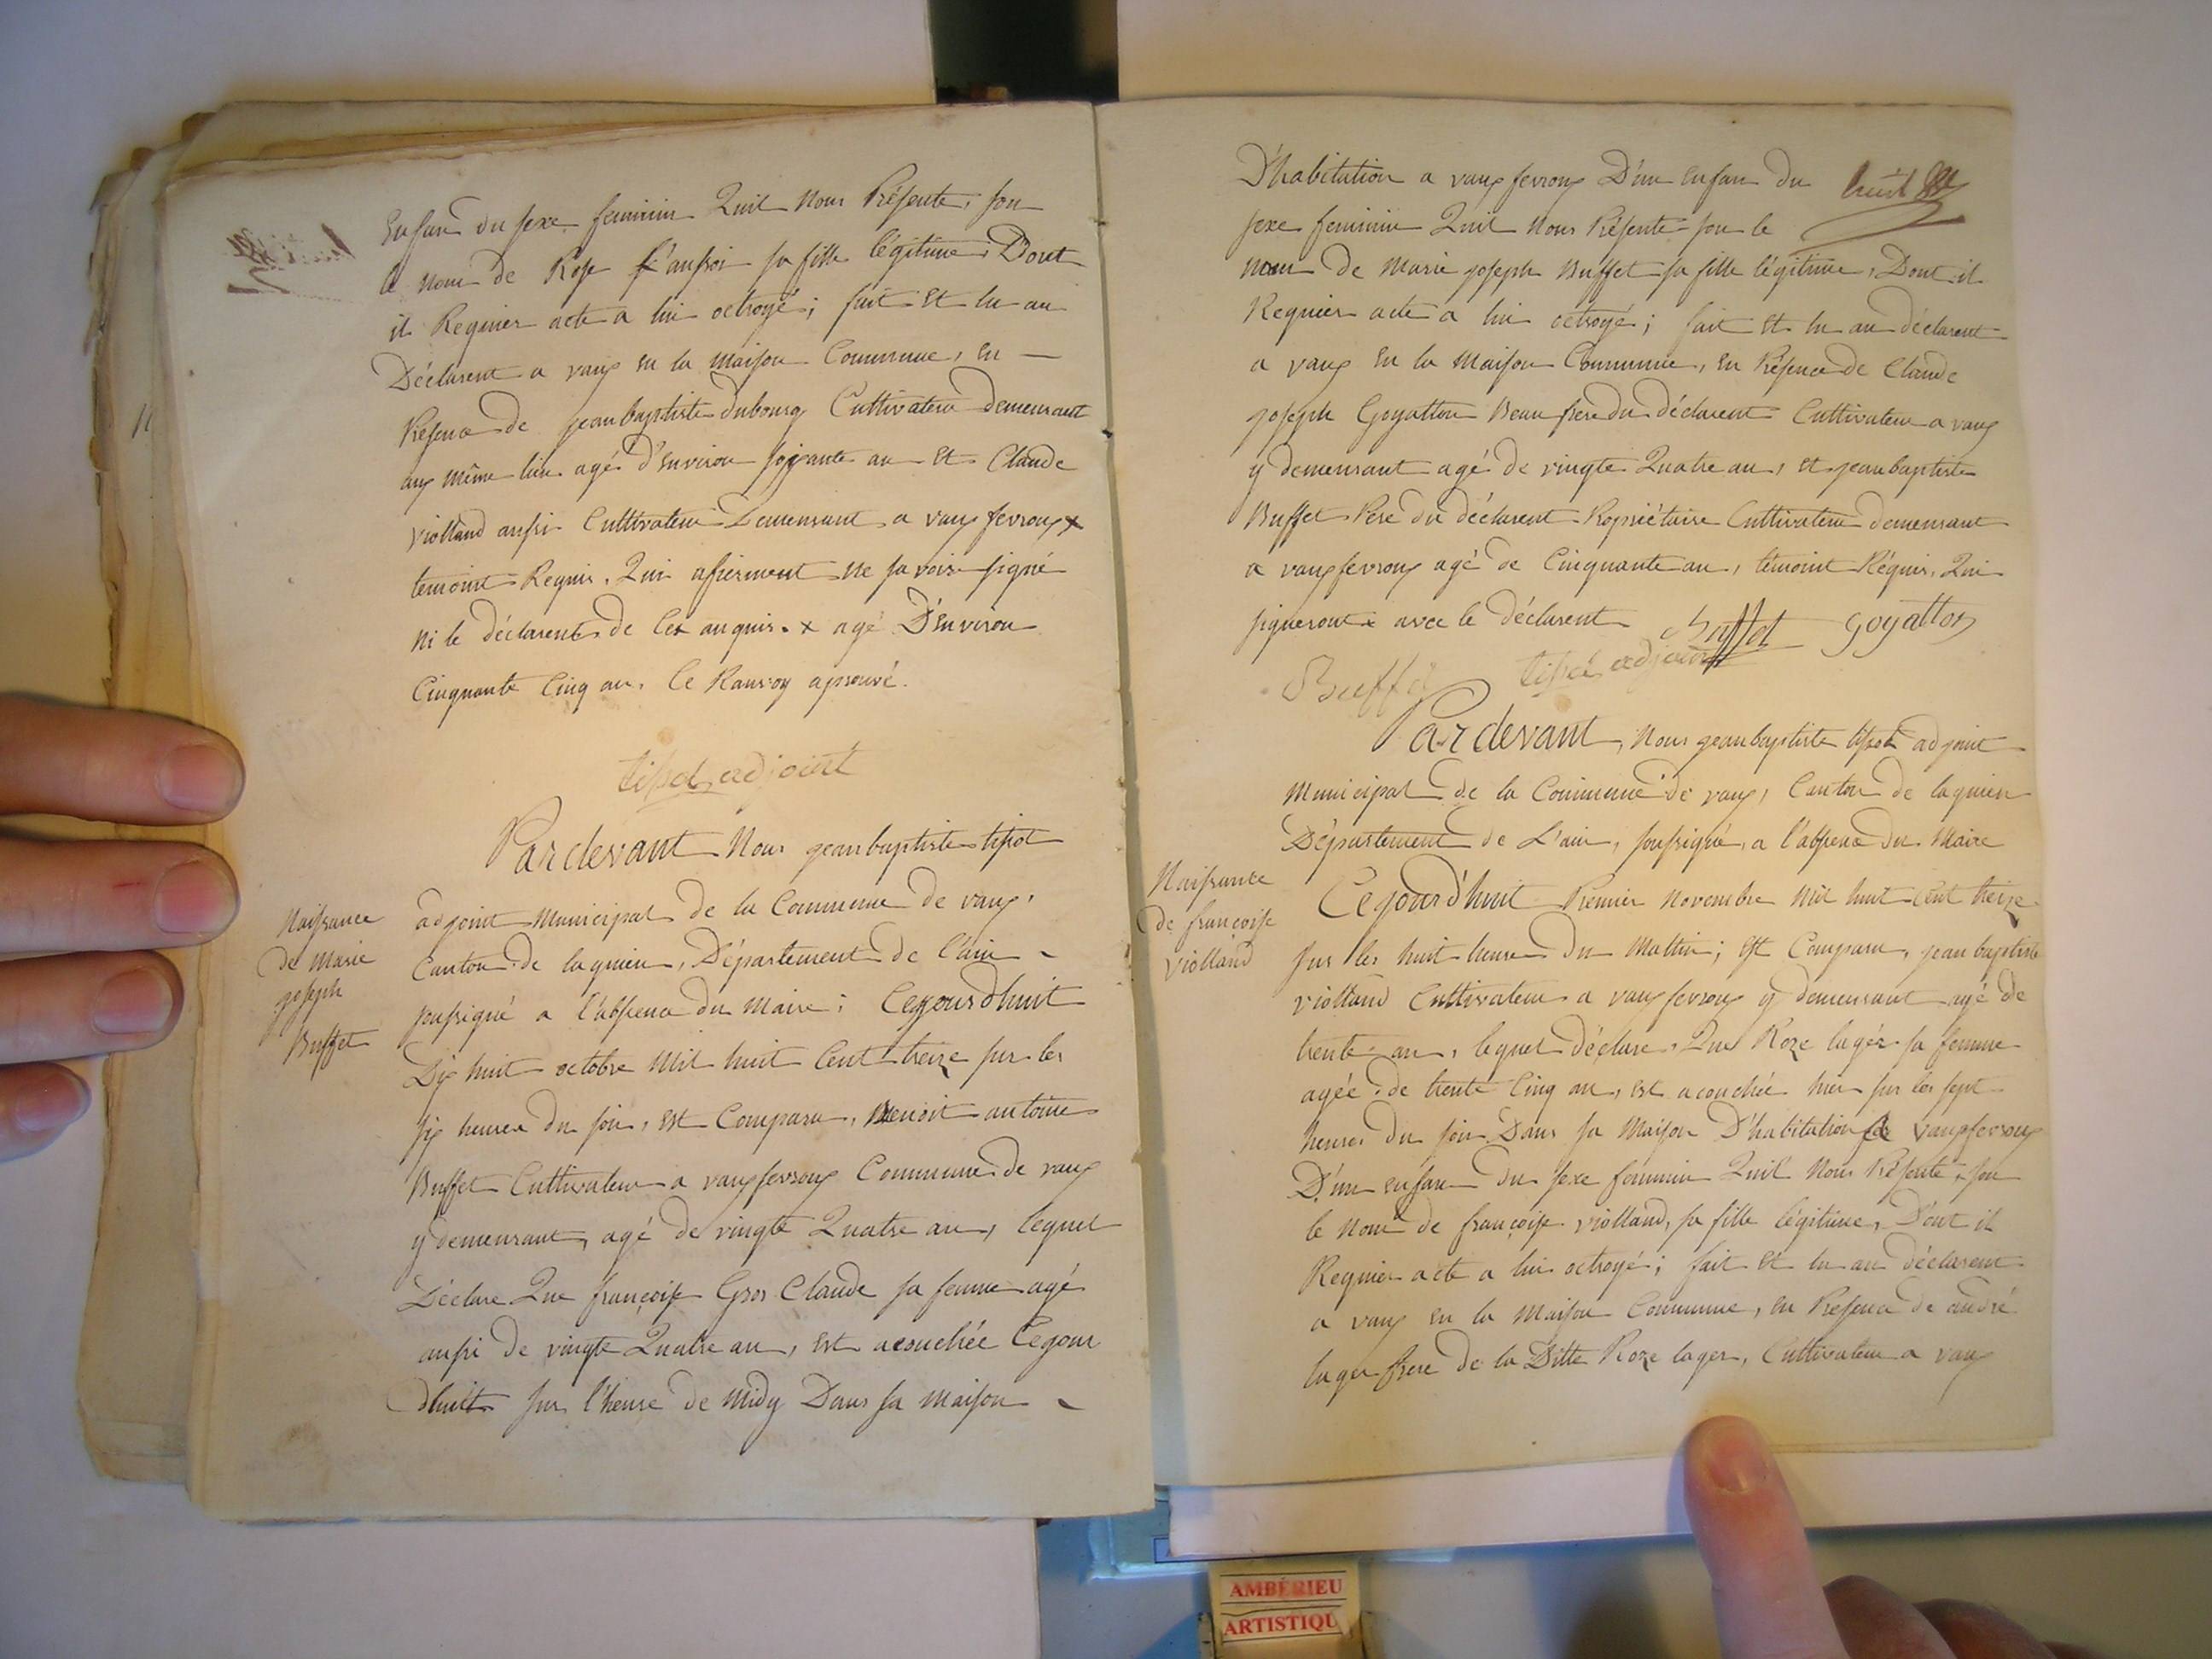 Enfant du sexe feminin Quil nous Présente, sou
le nom de Rose sa fille légitime, Dont
il Requier acte a lui octroyé; fait et lu au
Déclarent a vaux en la maison Commune, en
Présence de jean baptiste dubourg Cultivateur demeurant
aux même lieu agé d'environ soixante an et Claude
viottand aussi Cultivateur Demeurant a vaux fevroux x
temoint Requis. Qui afierment ne savoir signé
ni le déclarent de Ces anquis. x agé D'environ
Cinquante Cinq an. le Ranvoy aprouvé.
tissot adjoint
Pardevant Nous jean baptiste tissot
Naissance
de Marie
joseph
Buffet
adjoint municipal de la Commune de vaux,
Canton de lagnieu, Département de l'ain
soussigné a l'abssence du maire; Cejourd'huit
Dix huit octobre Mil huit Cent treize sur les
six heures du soir, est Comparu, Benoit antoine
Buffet Cultivateur a vaux fevroux Commune de vaux
y demeurant, agé de vingte Quatre an, lequel
Déclare Que françoise Gros Claude sa femme agé
aussi de vingte Quatre an, est acouchée Cejour
dhuit sur l'heure de midy Dans sa maison
huit
D'habitation a vaux fevroux D'un enfan du
sexe feminin Quil nous Présente sou le
nom de Marie joseph Buffet sa fille légitime, Dont il
Requier acte a lui octroyé; fait et lu au déclarent
a vaux en la Maison Commune, en Présence de Claude
joseph Goyatton Beau frere du déclarent Cultivateur a vaux
y demeurant agé de vingte Quatre an, et jean baptiste
Buffet Pere du déclarent Propriétaire Cultivateur demeurant
a vaux fevroux agé de Cinquante an, temoint Réquis, Qui
signeront avec le déclarent Buffet Goyatton
Buffet tissot adjoint
Pardevant, Nous jean baptiste tissot adjoint
Municipal de la Commune de vaux, Canton de lagnieu
Département de L'ain, soussigné, a l'abssence du Maire
Naissance
de françoise
viottand
Cejourd'huit Premier Novembre Mil huit Cent treize
sur les huit heure du Mattin; est Comparu, jean baptiste
viottand Cultivateur a vaux fevroux y demeurant agé de
trente an, lequel déclare, Que Roze lager sa femme
agée de trente Cinq an, est acouchée hier sur les sept
heures du soir Dans sa Maison D'habitation a vaux fevroux
D'un enfan du sexe féminin Quil Nous Présente, sou
le Nom de françoise viottand, sa fille légitime, Dont il
Requier acte a lui octroyé; fait et lu au déclarent
a vaux en la Maison Commune, en Présence de andré
lager frere de la Ditte Roze lager, Cultivateur a vaux
AMBÉRIEU
ARTISTIQU